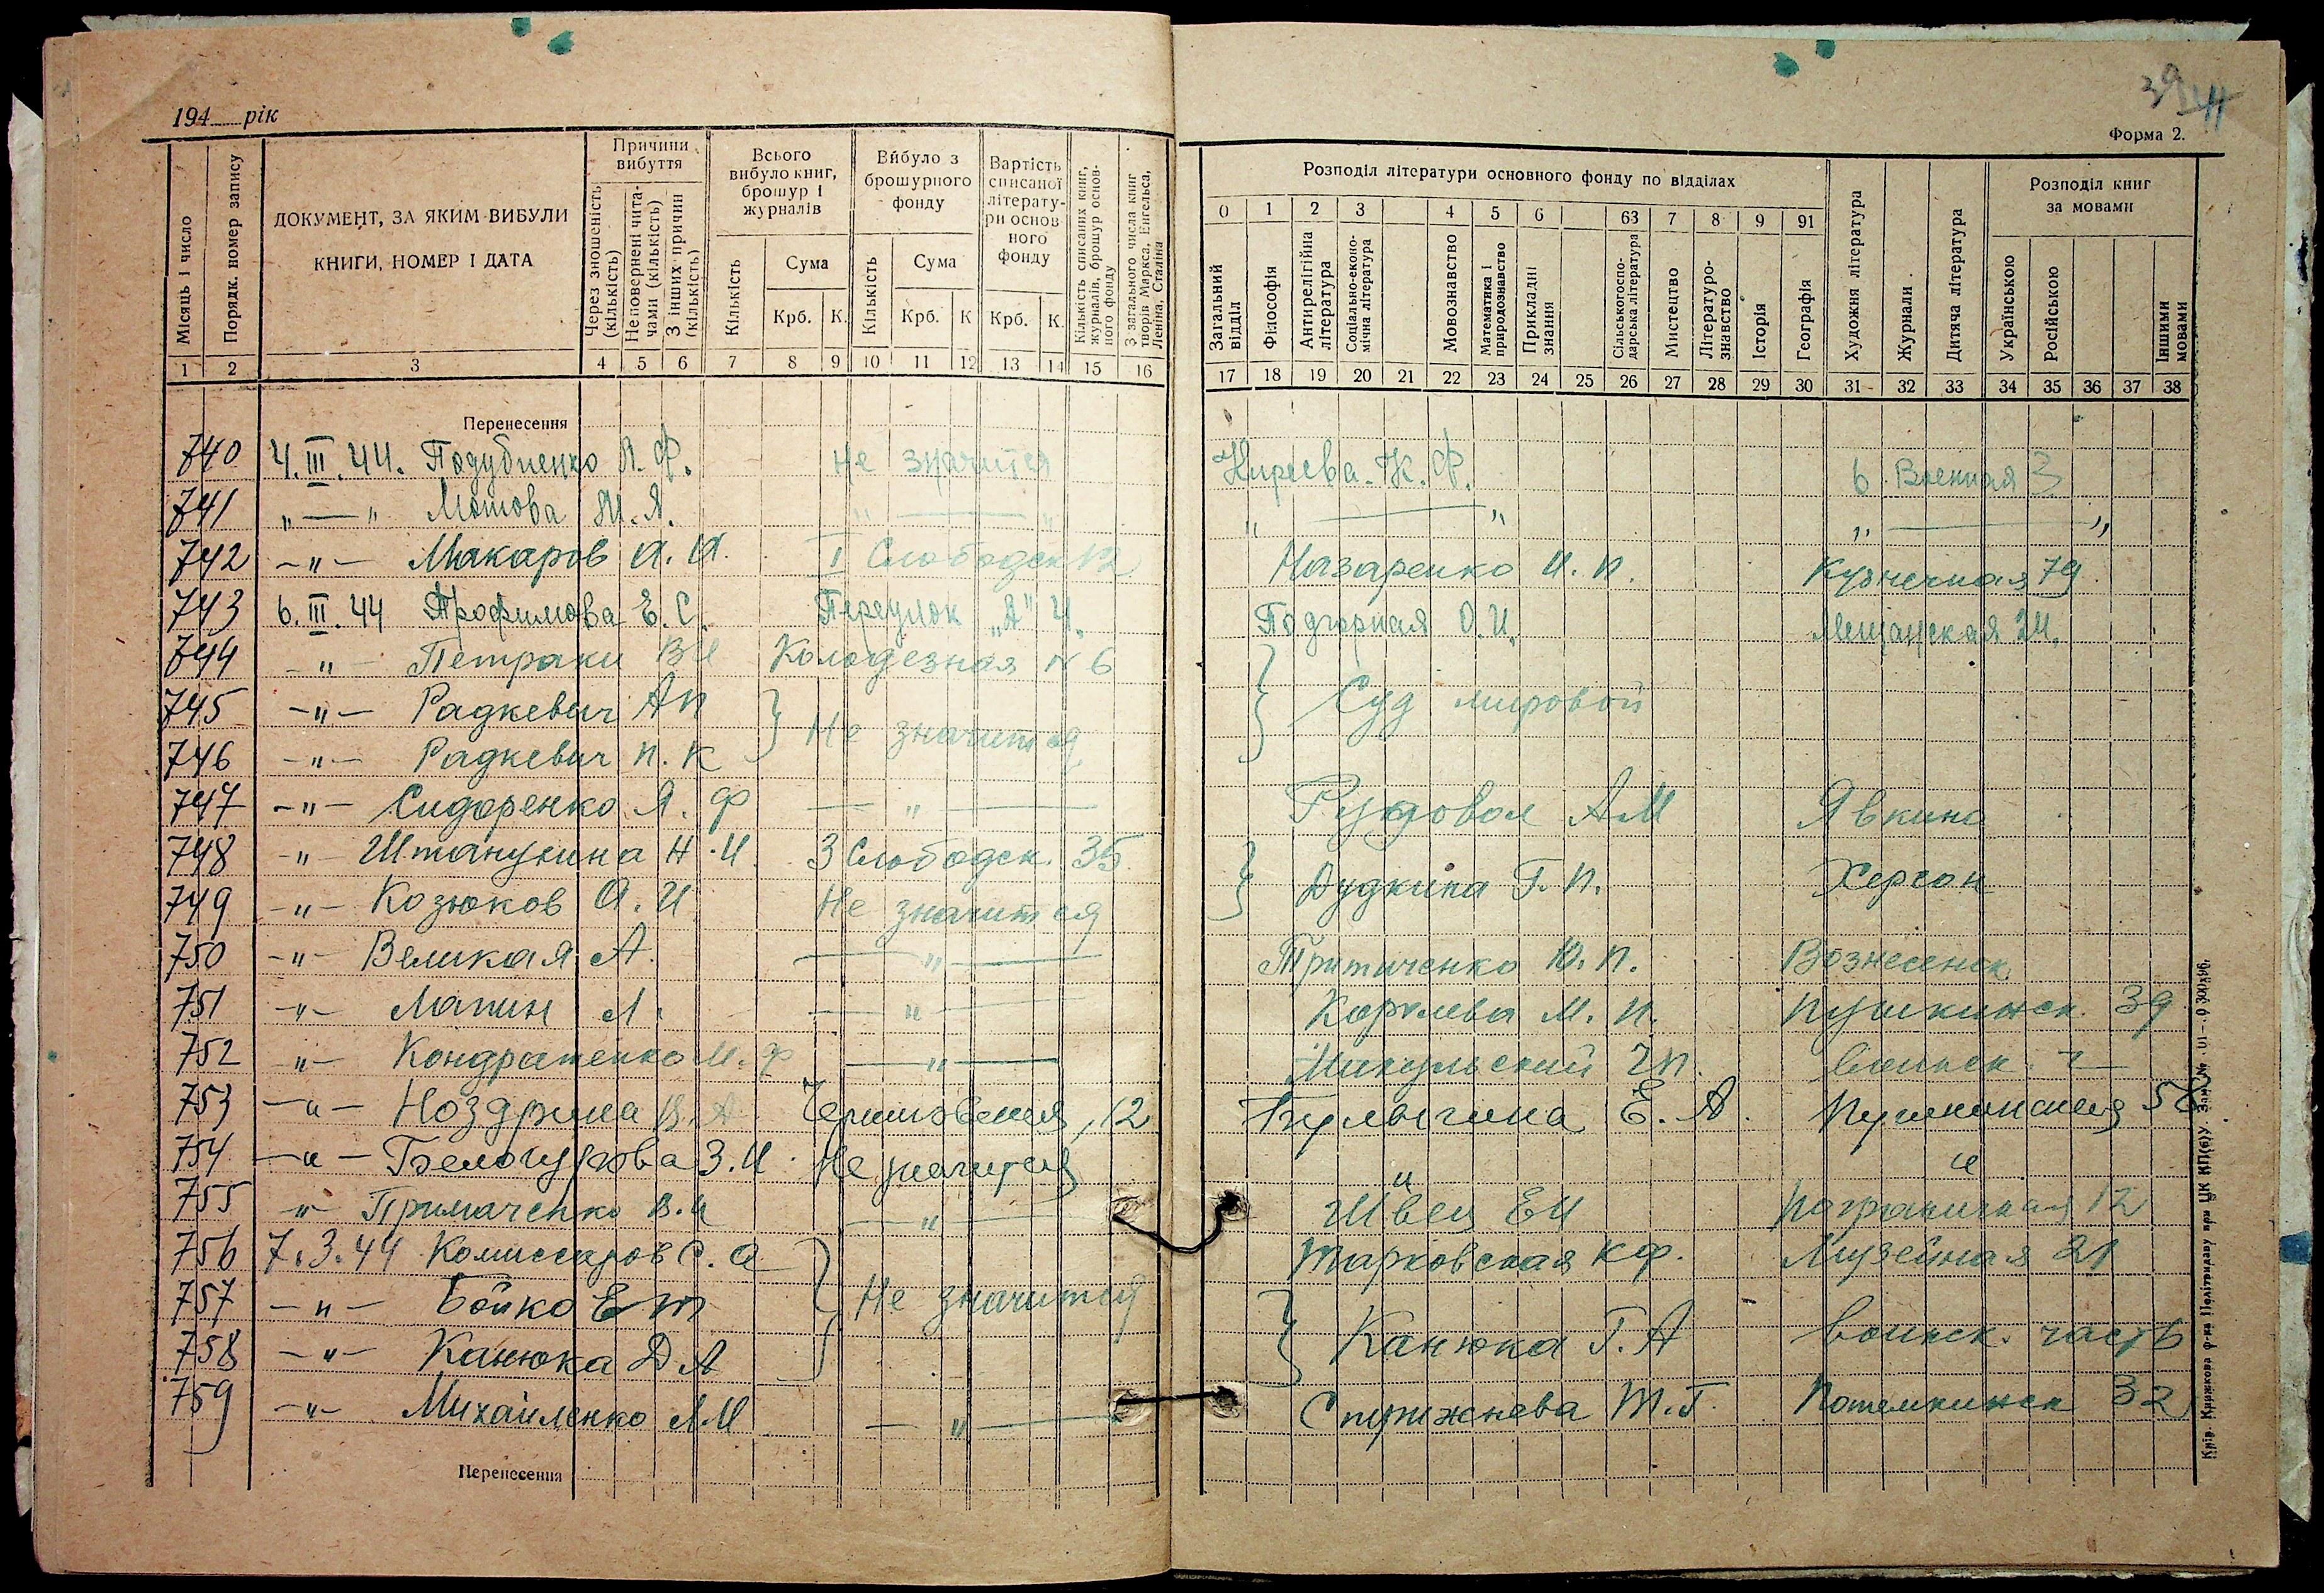 39 41
194 рік
Форма 2.
Місяць і число
Порядк. номер запису
ДОКУМЕНТ, ЗА ЯКИМ ВИБУЛИ
КНИГИ, НОМЕР І ДАТА
Причини вибуття
Через зношеність (кількість)
Неповернені читачами (кількість)
З інших причин (кількість)
Всього вибуло книг, брошур і журналів
Кількість
Сума
Крб. К.
Вибуло з брошурного фонду
Кількість
Сума
Крб. К
Вартість списаної літератури основного фонду
Крб. К.
Кількість списаних книг, журналів, брошур основного фонду
З загального числа книг творів Маркса, Енгельса, Леніна, Сталіна
Розподіл літератури основного фонду по відділах
0 1 2 3 4 5 6 63 7 8 9 91
Загальний відділ
Філософія
Антирелігійна література
Соціально-економічна література
Мовознавство
Математика і природознавство
Прикладні знання
Сільськогосподарська література
Мистецтво
Літературознавство
Історія
Географія
Художня література
Журнали
Дитяча література
Розподіл книг за мовами
Українською
Російською
Іншими мовами
1 2 3 4 5 6 7 8 9 10 11 12 13 14 15 16
17 18 19 20 21 22 23 24 25 26 27 28 29 30 31 32 33 34 35 36 37 38
Перенесення
740 4.III.44. Подубненко Я. Ф. Не значится Киреева. К. Ф. 6. Военная 3
741 „ — „ Мотова М. Я. „ — „ „ — „ „ — „
742 – „ – Макаров А. И. I Слободск 12 Назаренко И. П. Кузнечная 79.
743 6.III.44 Трофимова Е. С. Переулок „А" 4. Подгорная О. И. Мещанская 34.
744 – „ – Петраки В И Колодезная N 6
745 – „ – Радкевич А П } Не значится } Суд мировой
746 – „ – Радкевич П. К
747 – „ – Сидоренко Я. Ф — „ — А М Явкино
748 – „ – И. 3 Слободск. 35 } Дудкина Г. П. Херсон
749 – „ – Козюков А. И Не значится
750 – „ – Великая А. — „ — Ю. П. Вознесенск.
751 – „ – Лапин Л. — „ — Королева М. И. Пушкинск. 39
752 „ – Кондратенко М. Ф — „ — Микульский
753 – „ – Ноздрина В. А , 12 Булыгина Е. А. Пушкинская 58
754 – „ – З. И. Не значится „ „
755 „ Примаченко В. И — „ — Швец Е И Пограничная 12
756 7.3.44 Комиссаров С. А } Не значится Тарковская К Ф. Музейная 21
757 – „ – Бойко Е Т } Канюка Г. А воинск. часть
758 – „ – Канюка Д А
759 – „ – Михайленко Л И — „ — Спрыжнева Т. Г. Потемкинск 32
Перенесення